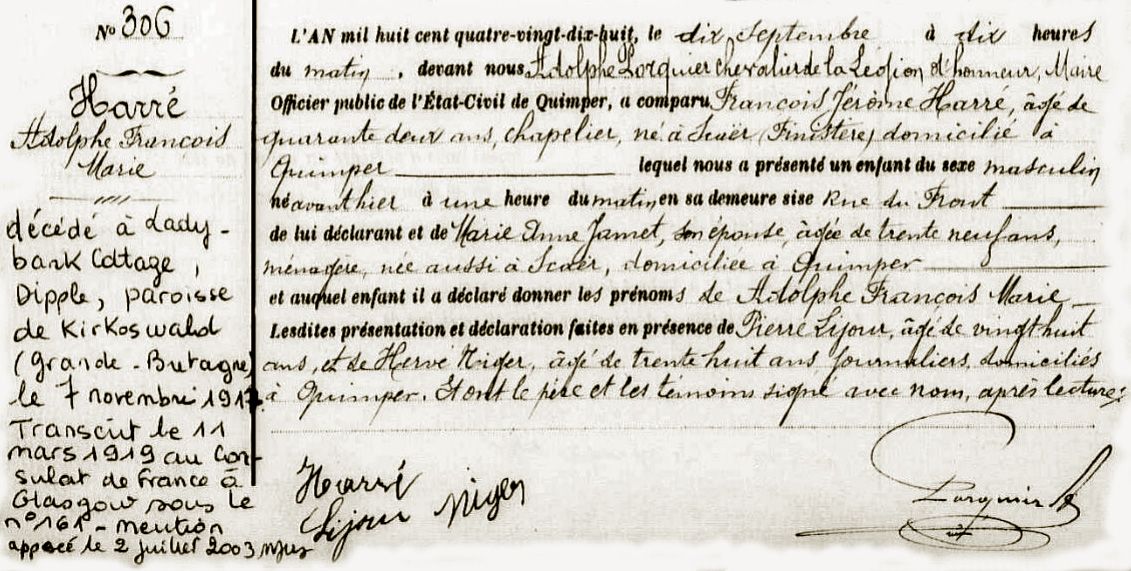 N° 306
Harré
Adolphe François
Marie
décédé à Lady-
bank Cottage,
Dipple, paroisse
de Kirkoswald
(Grande-Bretagne)
le 7 novembre
Transcrit le 11
mars 1919 au Con-
sulat de France à
Glasgow sous le
n° 161 - mention
apposée le 2 juillet 2003
L'AN mil huit cent quatre-vingt-dix-huit, le dix Septembre à dix heures
du matin, devant nous Adolphe Porquier Chevalier de la Légion d'honneur, Maire
Officier public de l'État-Civil de Quimper, a comparu François Jérôme Harré, âgé de
quarante deux ans, chapelier, né à Scaër (Finistère) domicilié à
Quimper lequel nous a présenté un enfant du sexe masculin
né avant hier à une heure du matin en sa demeure sise Rue du Front
de lui déclarant et de Marie Anne Jamet, son épouse, âgée de trente neuf ans,
ménagère, née aussi à Scaër, domiciliée à Quimper
et auquel enfant il a déclaré donner les prénoms de Adolphe François Marie
Lesdites présentation et déclaration faites en présence de Pierre Lijour, âgé de vingt huit
ans, et de Hervé Niger, âgé de trente huit ans, journaliers, domiciliés
à Quimper. Et ont le père et les témoins signé avec nom, après lecture.
Harré
Lijour Niger
Porquier